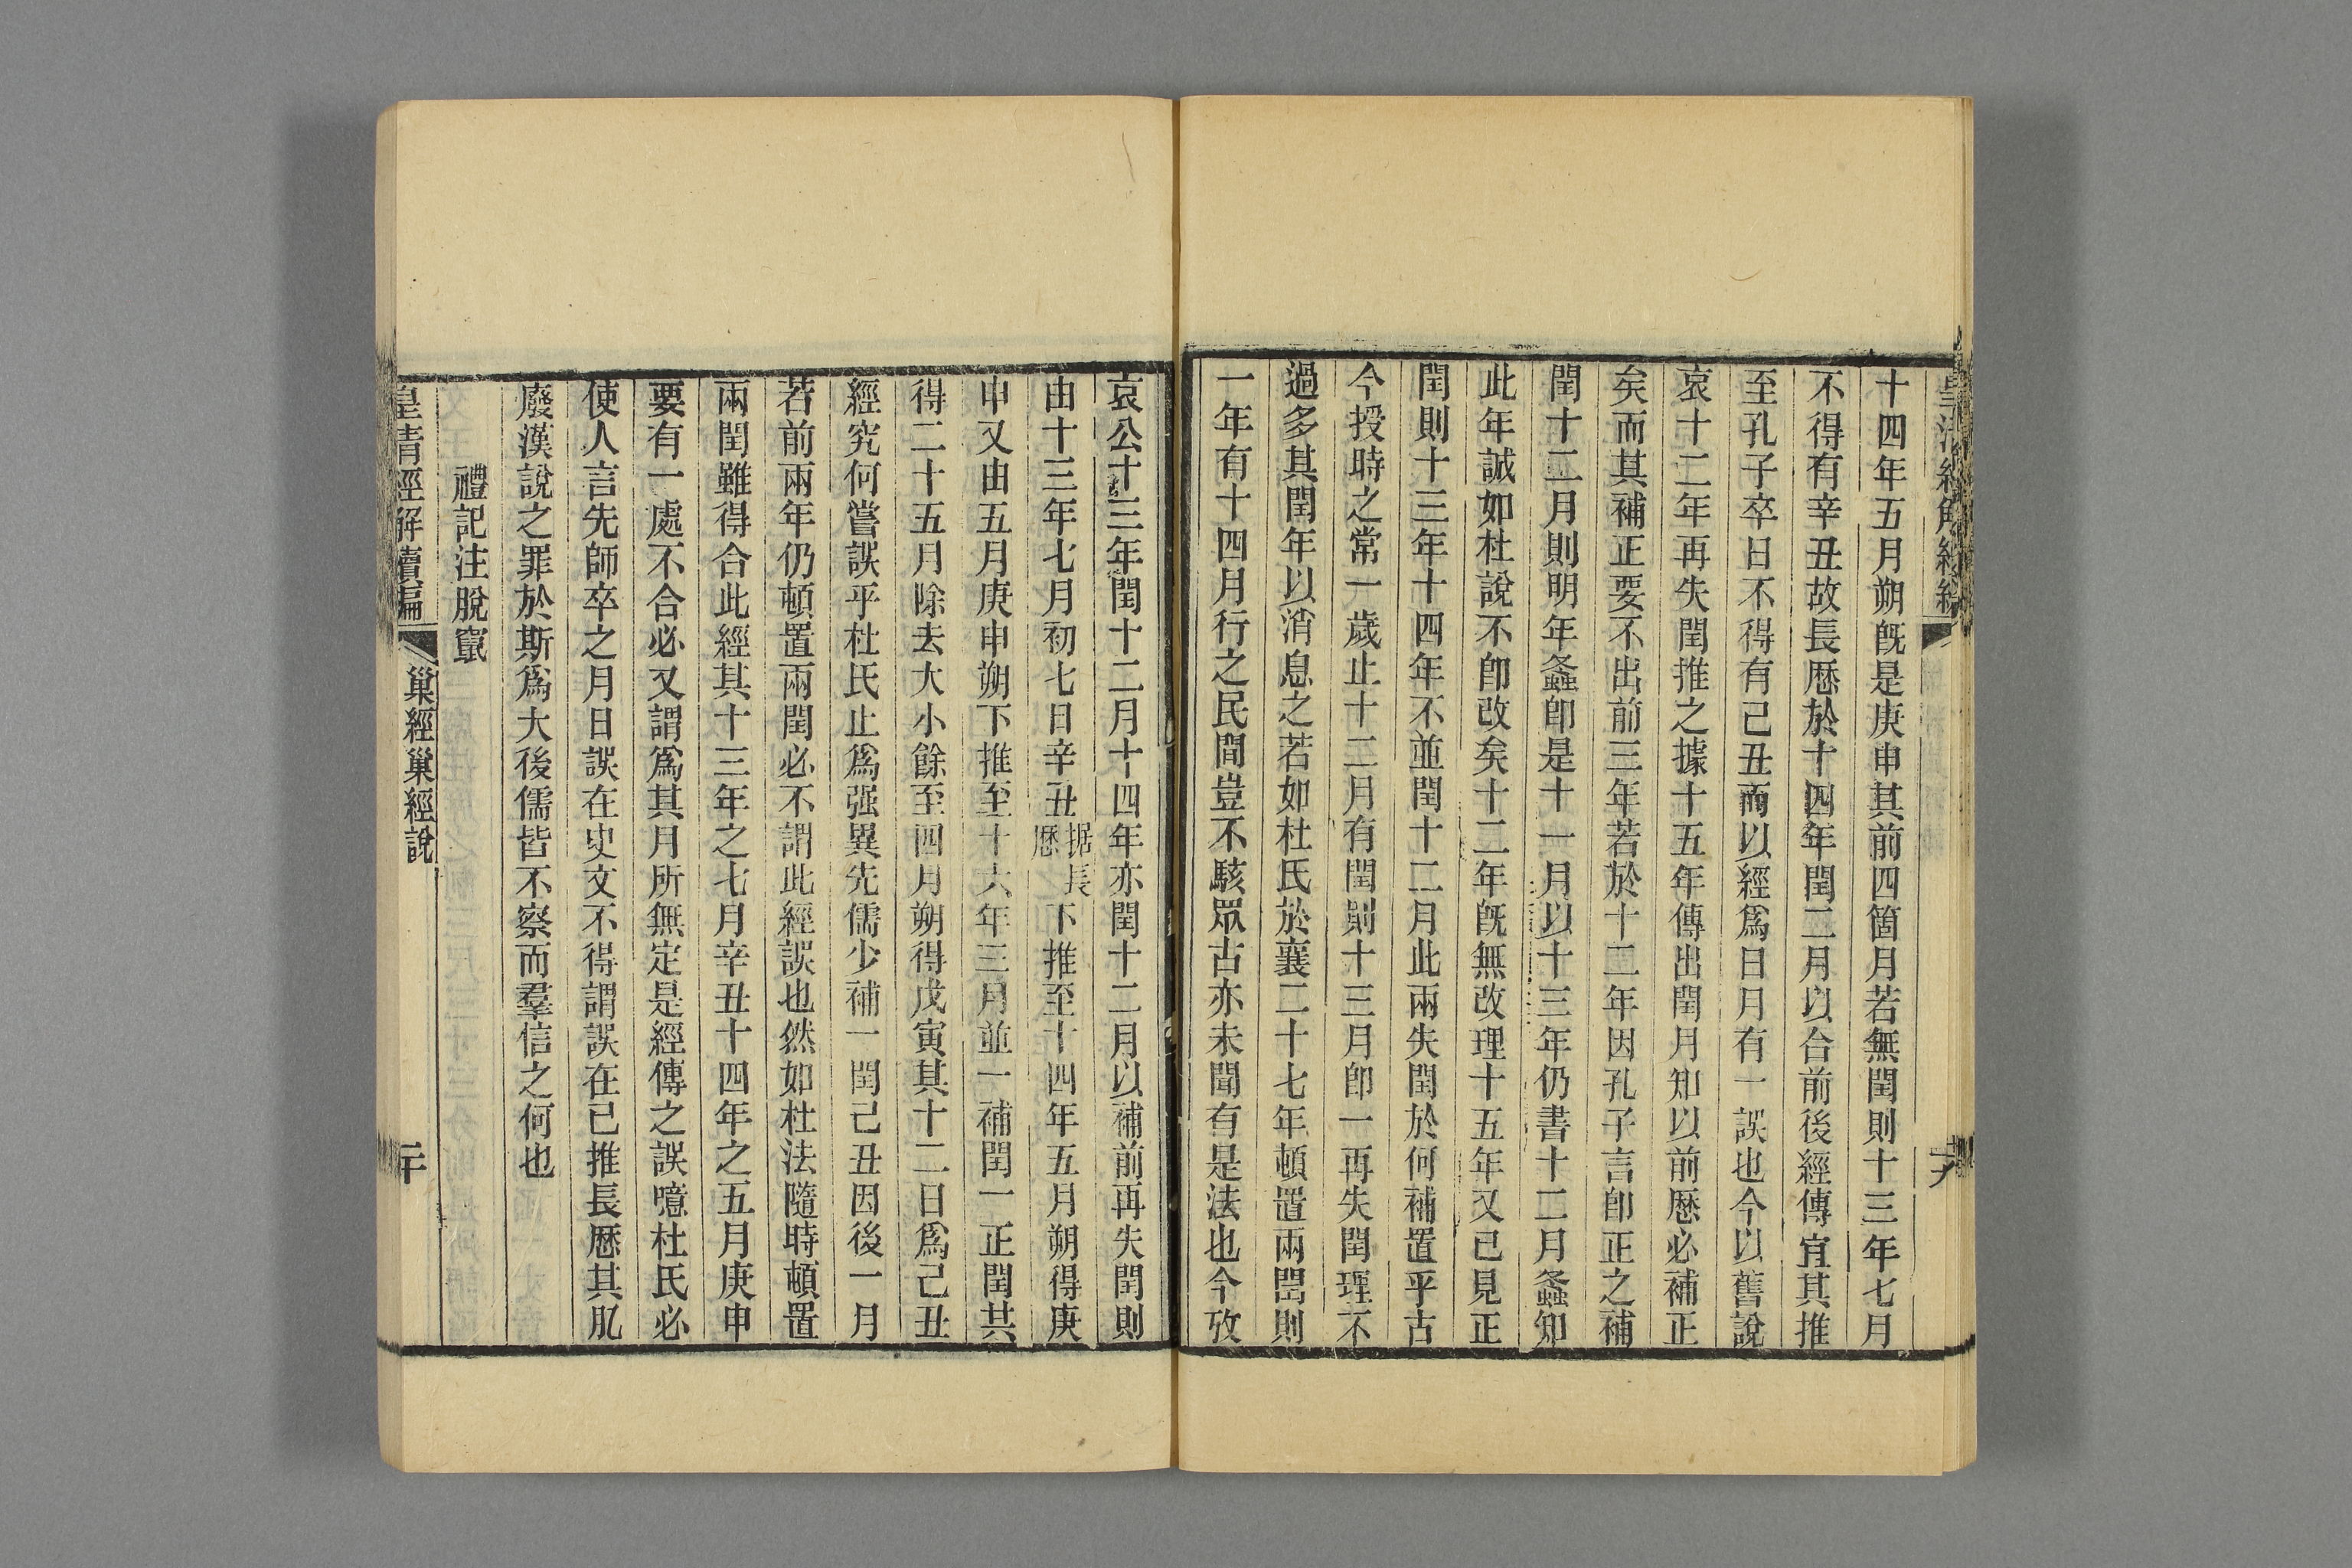 十四年五月朔旣是庚申其前四箇月若無閏則十三年七月
不得有辛丑故長厯於十四年閏二月以合前後經傳宜其推
至孔子卒日不得有己丑而以經爲日月有一誤也今以舊說
哀十二年再失閏推之據十五年傳出閏月知以前厯必補正
矣而其補正要不出前三年若於十二年因孔子言卽正之補
閏十二月則明年螽卽是十一月以十三年仍書十二月螽知
此年誠如杜說不卽改矣十二年旣無改理十五年又已見正
閏則十三年十四年不並閏十二月此兩失閏於何補置乎古
今授時之常一歲止十二月有閏則十三月卽一再失閏理不
過多其閏年以消息之若如杜氏於襄二十七年頓置兩閏則
一年有十四月行之民間豈不駭眾古亦未聞有是法也今攷
哀公十三年閏十二月十四年亦閏十二月以補前再失閏則
由十三年七月初七日辛丑据長厯下推至十四年五月朔得庚
申又由五月庚申朔下推至十六年三月並一補閏一正閏共
得二十五月除去大小餘至四月朔得戊寅其十二日爲己丑
經究何嘗誤乎杜氏止爲强異先儒少補一閏己丑因後一月
若前兩年仍頓置兩閏必不謂此經誤也然如杜法隨時頓置
兩閏雖得合此經其十三年之七月辛丑十四年之五月庚申
要有一處不合必又謂爲其月所無定是經傳之誤噫杜氏必
使人言先師卒之月日誤在史文不得謂誤在已推長厯其肊
廢漢說之罪於斯爲大後儒皆不察而羣信之何也
禮記注脫竄
皇清經解續編
巢經巢經說
二十